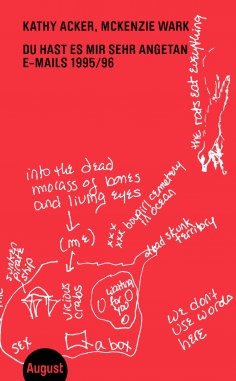 KATHY ACKER, MCKENZIE WARK
DU HAST ES MIR SEHR ANGETAN
E-MAILS 1995/96
the rats eat everything
into the dead
morass of bones
and living eyes
(me)
xxx bougirl cemetery
xxx in ocean
dead skunk
territory
sunken
pirate
ship
vicious
crabs
waiting
for
you
we don't
use words
here
set
a box
August